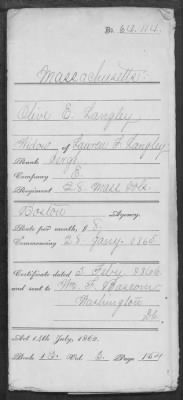 No. 64.114.
Massachusetts.
Olive E. Langley
Widow of Lauren F. Langley
Rank Sergt.
Company E.
Regiment 28 Mass Vols.
Boston Agency.
Rate per month, $ 8/
Commencing 28 Jany. 1865
Certificate dated 5 Feby 1866
and sent to Wm. F. Bascom
Washington
D.C.
Act 14th July, 1862.
Book Vol. Page 154